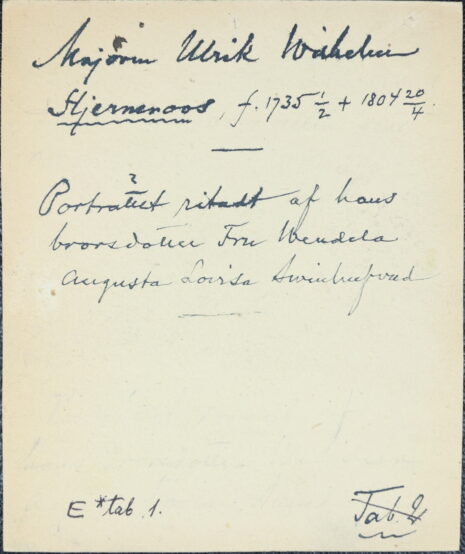 Majoren Ulrik Wilhelm
Stjernroos, f. 1735 1/2 + 1804 20/4.
?
Porträttet ritadt af hans
brorsdotter Fru Wendela
Augusta Lovisa Swinhufvud
E *tab. 1.
Tab. 4